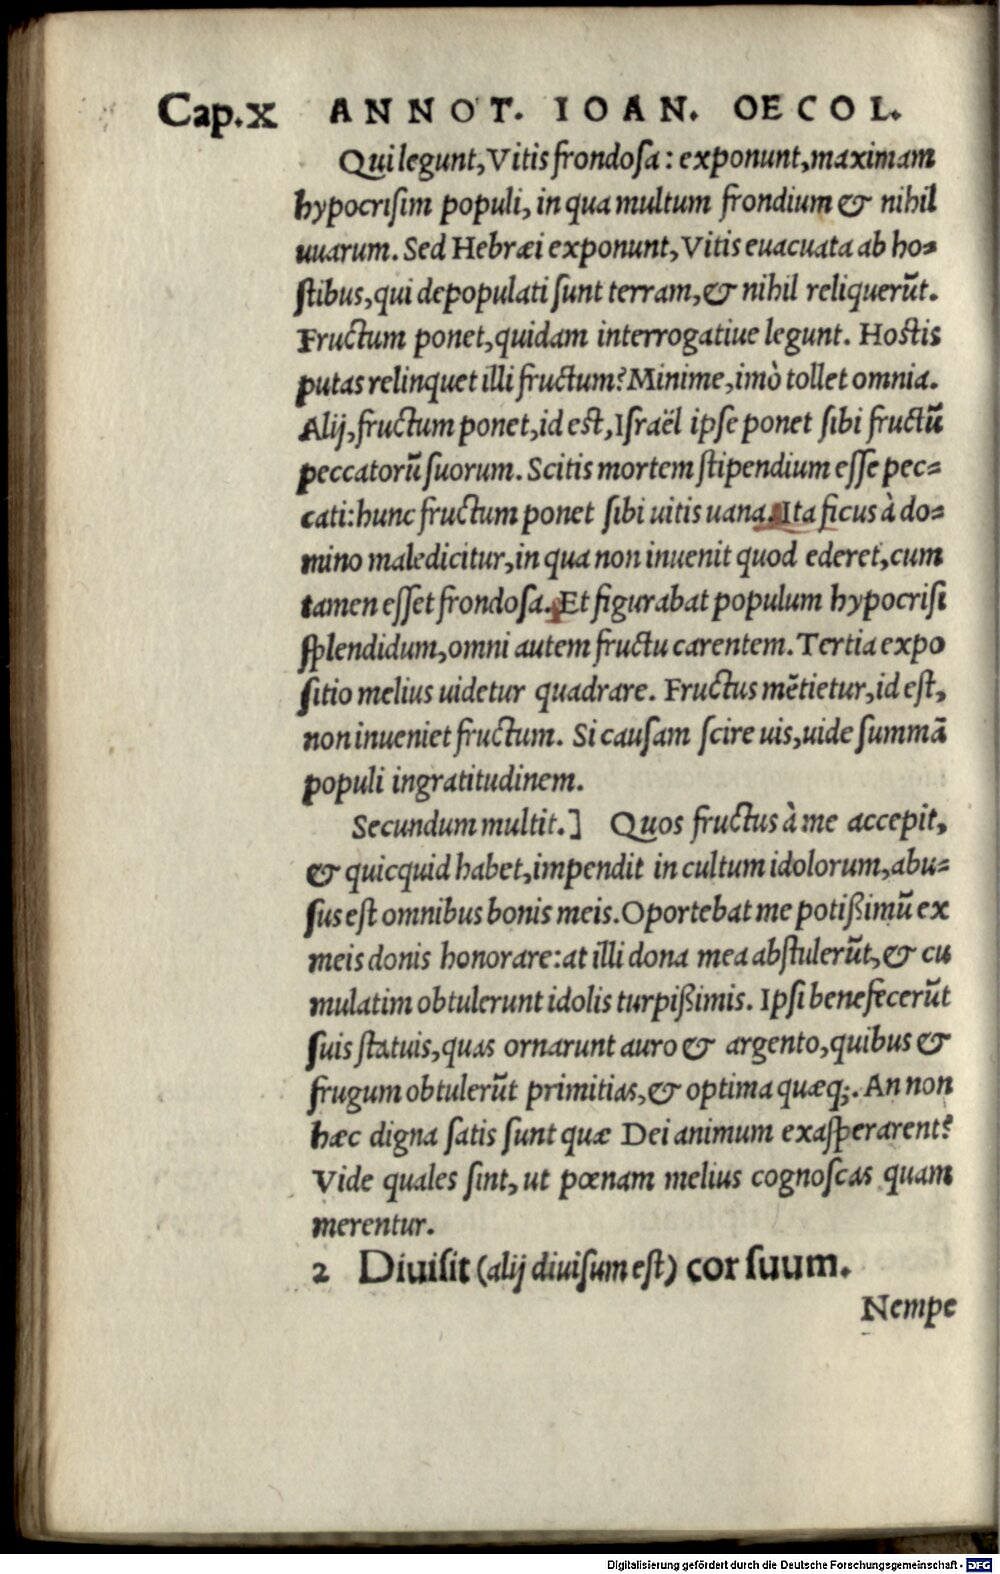 Cap.x ANNOT. IOAN. OECOL.
Qui legunt, Vitis frondosa: exponunt, maximam
hypocrisim populi, in qua multum frondium & nihil
uuarum. Sed Hebræi exponunt, Vitis euacuata ab ho=
stibus, qui depopulati sunt terram, & nihil reliquerũt.
Fructum ponet, quidam interrogatiue legunt. Hostis
putas relinquet illi fructum? Minime, imò tollet omnia.
Alij, fructum ponet, id est, Israël ipse ponet sibi fructũ
peccatorũ suorum. Scitis mortem stipendium esse pec=
cati: hunc fructum ponet sibi uitis uana. Ita ficus à do=
mino maledicitur, in qua non inuenit quod ederet, cum
tamen esset frondosa. Et figurabat populum hypocrisi
splendidum, omni autem fructu carentem. Tertia expo
sitio melius uidetur quadrare. Fructus mẽtietur, id est,
non inueniet fructum. Si causam scire uis, uide summã
populi ingratitudinem.
Secundum multit.] Quos fructus à me accepit,
& quicquid habet, impendit in cultum idolorum, abu=
sus est omnibus bonis meis. Oportebat me potißimũ ex
meis donis honorare: at illi dona mea abstulerũt, & cu
mulatim obtulerunt idolis turpißimis. Ipsi benefecerũt
suis statuis, quas ornarunt auro & argento, quibus &
frugum obtulerũt primitias, & optima quæq;. An non
hæc digna satis sunt quæ Dei animum exasperarent?
Vide quales sint, ut pœnam melius cognoscas quam
merentur.
2 Diuisit (alij diuisum est) cor suum.
Nempe
Digitalisierung gefördert durch die Deutsche Forschungsgemeinschaft - DFG